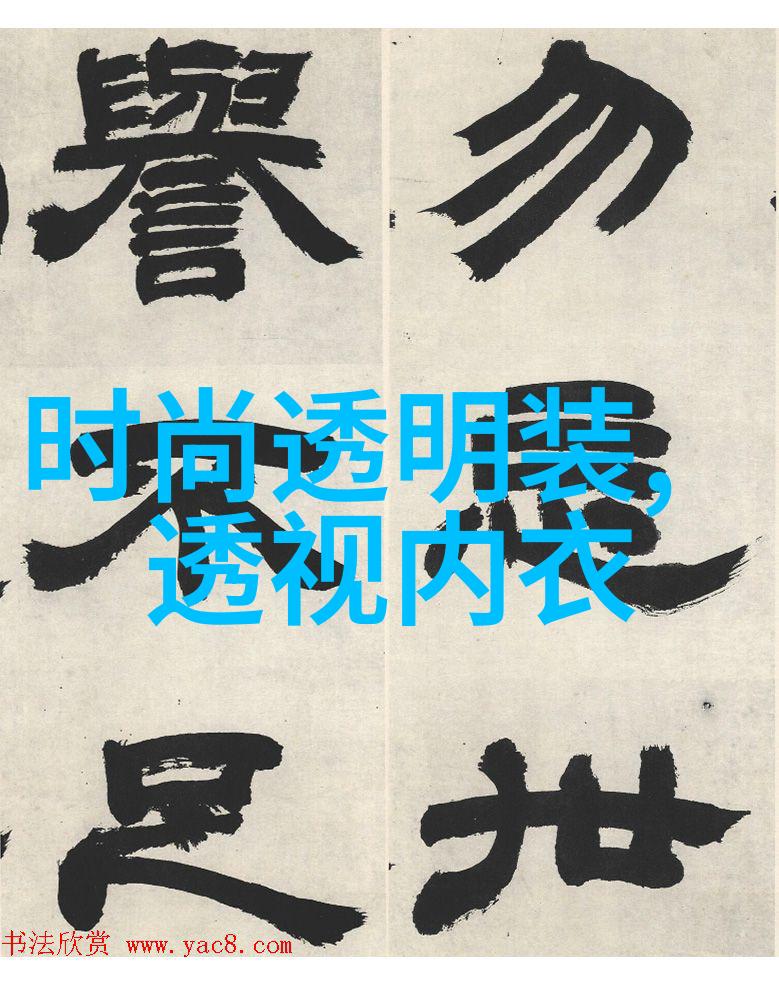 勿忘世
譽不足
时尚透明装,
透视内衣
书法欣赏 www.yac8.com